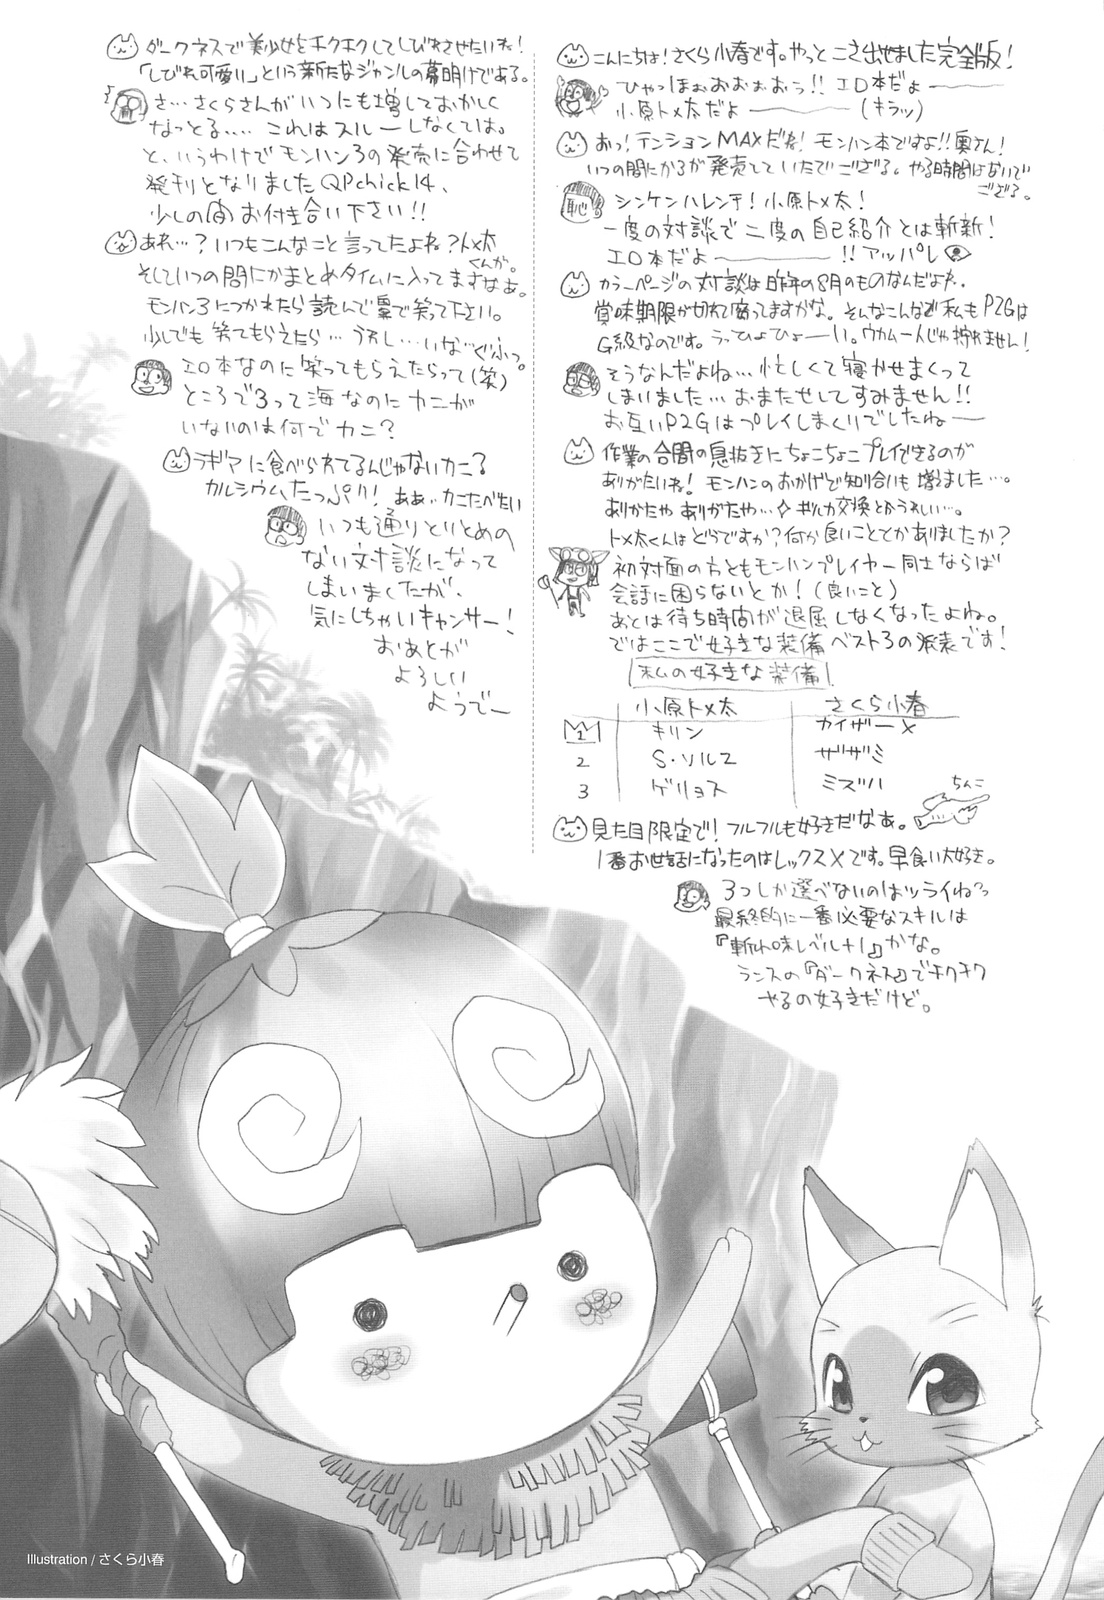 こんにちは!さくら小春です。やっとこさ出せました完全版!
ひゃっほぉおぉぉおぅ!! エロ本だよ―――
小原トメ太だよ――――(キラッ)
おっ!テンションMAXだね!モンハン本ですよ!!奥さん!
いつの間にか3が発売していたでござる。やる時間はないで
ござる。
恥
シンケンハレンチ!小原トメ太!
一度の対談で二度の自己紹介とは斬新!
エロ本だよ――――!!アッパレ
カラーページの対談は昨年の8月のものなんだよね..
賞味期限が切れて腐ってますがな。そんなこんなで私もP2Gは
G級なのです。うっひょひょーい。ウカム一人じゃ狩れません!
そうなんだよね…忙しくて寝かせまくって
しまいました…おまたせしてすみません!!
お互いP2Gはプレイしまくりでしたね――
作業の合間の息抜きにちょこちょこプレイできるのが
ありがたいね!モンハンのおかげで知り合いも増えました…。
ありがたや ありがたや…◇ ギルカ交換とかうれしい…。
トメ太くんはどうですか?何か良いこととかありましたか?
初対面の方ともモンハンプレイヤー同士ならば
会話に困らないとか!(良いこと)
あとは待ち時間が退屈しなくなったよね。
ではここで好きな装備ベスト3の発表です!
私の好きな装備
小原トメ太 さくら小春
1 キリン カイザーX
2 S・ソルZ ザザミ
3 ゲリョス ミズハ
ちんこ
見た目限定で!フルフルも好きだなぁ。
1番お世話になったのはレックスXです。早食い大好き。
3つしか選べないのはツライねっ
最終的に一番必要なスキルは
『斬れ味レベル+1』かな。
ランスの『ダークネス』でチクチク
やるの好きだけど。
ダークネスで美少女をチクチクしてしびれさせたいね!
「しびれ可愛い」という新たなジャンルの幕明けである。
さ…さくらさんがいつにも増しておかしく
なっとる....これはスルーしなくては。
と、いうわけでモンハン3の発売に合わせて
発刊となりましたQPchick14、
少しの間お付き合い下さい!!
あれ…?いつもこんなこと言ってたよね?トメ太
くんが。
そしていつの間にかまとめタイムに入ってますなぁ。
モンハン3につかれたら読んで鼻で笑って下さい。
少しでも笑てもらえたら…うれし…いな…ぐふっ。
エロ本なのに笑ってもらえたらって(笑)
ところで3って海なのにカニが
いないのは何でカニ?
ラギアに食べられてるんじゃないカニ3
カルシウムたっぷり!ああ..カニたべたい
いつも通りとりとめの
ない対談になって
しまいましたが、
気にしちゃいキャンサー!
おあとが
よろしい
ようでー
Illustration / さくら小春